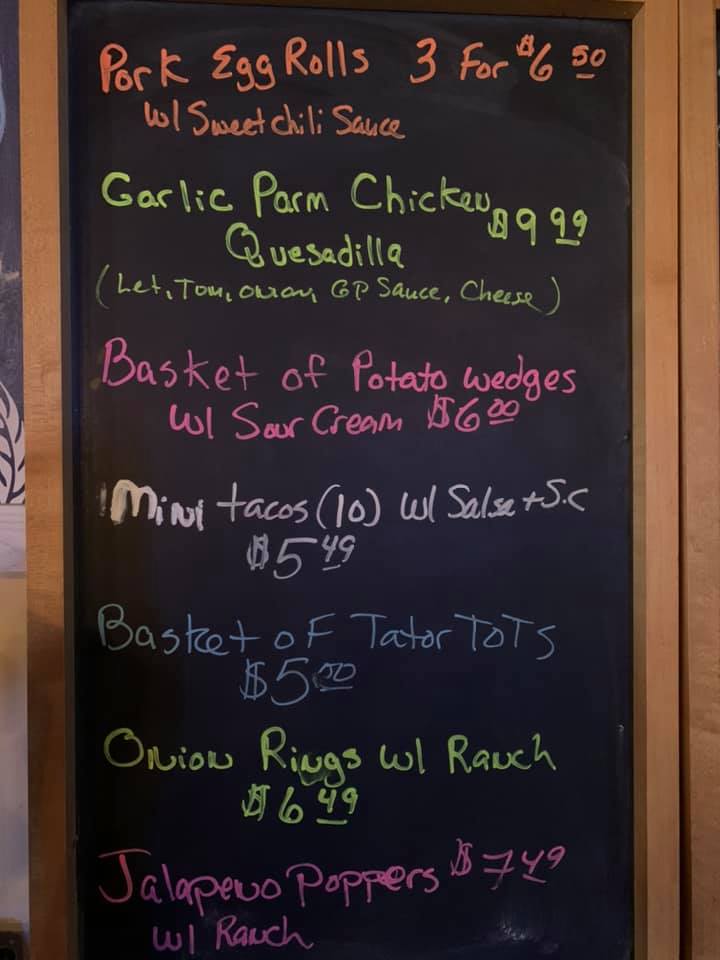 Pork Egg Rolls 3 For $6 50
w/ Sweet Chili Sauce
Garlic Parm Chicken $9 99
Quesadilla
(Let, Tom, onion, GP Sauce, Cheese)
Basket of Potato wedges
w/ Sour Cream $6 00
Mini tacos (10) w/ Salsa + S.C
$5 49
Basket oF Tator ToTs
$5 00
Onion Rings w/ Ranch
$6 49
Jalapeno Poppers $7 49
w/ Ranch